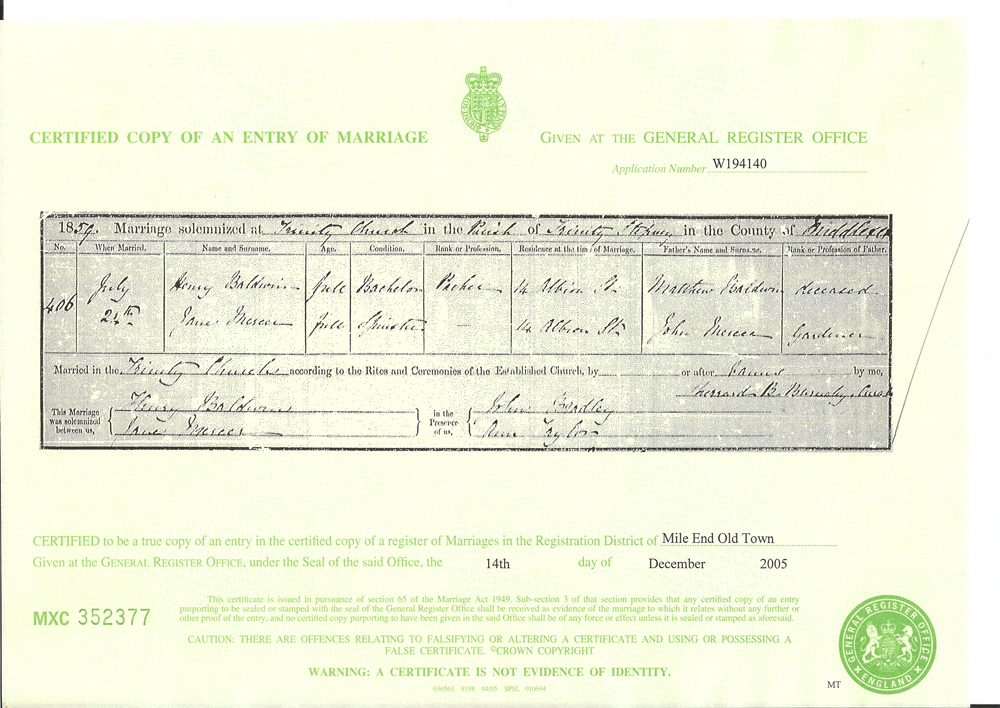 CERTIFIED COPY OF AN ENTRY OF MARRIAGE
GIVEN AT THE GENERAL REGISTER OFFICE
Application Number W194140
1859. Marriage solemnized at Trinity Church in the Parish of Trinity Stepney in the County of Middlesex
No. When Married. Name and Surname. Age. Condition. Rank or Profession. Residence at the time of Marriage. Father's Name and Surname. Rank or Profession of Father.
406 July 24th Henry Baldwin full Bachelor Packer 14 Albion St Matthew Baldwin deceased
Jane Mercer full Spinster — 14 Albion St John Mercer Gardener
Married in the Trinity Church according to the Rites and Ceremonies of the Established Church, by or after banns by me,
Sherrard B. Burnaby
This Marriage was solemnized between us, Henry Baldwin
Jane Mercer
in the Presence of us, John Bradley
Ann Taylor
CERTIFIED to be a true copy of an entry in the certified copy of a register of Marriages in the Registration District of Mile End Old Town
Given at the GENERAL REGISTER OFFICE, under the Seal of the said Office, the 14th day of December 2005
MXC 352377
This certificate is issued in pursuance of section 65 of the Marriage Act 1949. Sub-section 3 of that section provides that any certified copy of an entry
purporting to be sealed or stamped with the seal of the General Register Office shall be received as evidence of the marriage to which it relates without any further or
other proof of the entry, and no certified copy purporting to have been given in the said Office shall be of any force or effect unless it is sealed or stamped as aforesaid.
CAUTION: THERE ARE OFFENCES RELATING TO FALSIFYING OR ALTERING A CERTIFICATE AND USING OR POSSESSING A
FALSE CERTIFICATE. ©CROWN COPYRIGHT
WARNING: A CERTIFICATE IS NOT EVIDENCE OF IDENTITY.
036563 9198 04/05 SPSL 010694
MT
GENERAL REGISTER OFFICE
ENGLAND